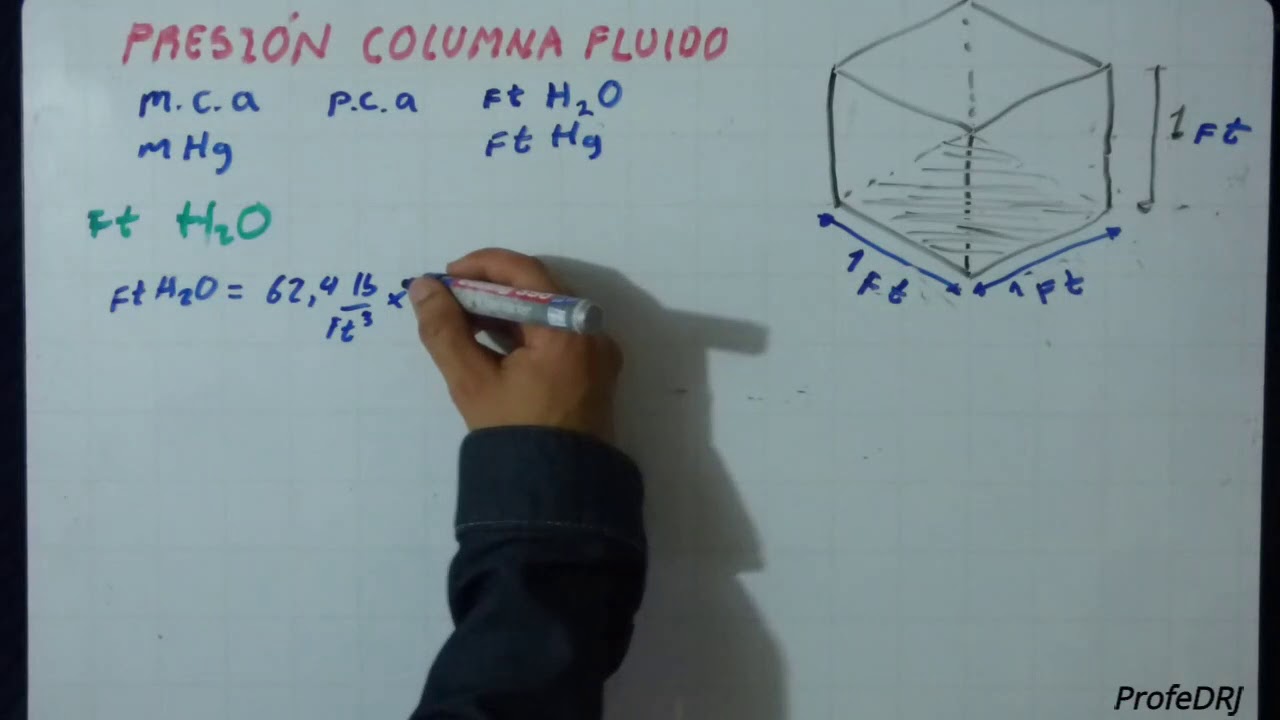 PRESIÓN COLUMNA FLUIDO
m.c.a p.c.a Ft H₂O
mHg Ft Hg
Ft H₂O
Ft H₂O = 62,4 lb/Ft³ x
1 Ft
1 Ft
1 Ft
ProfeDRJ